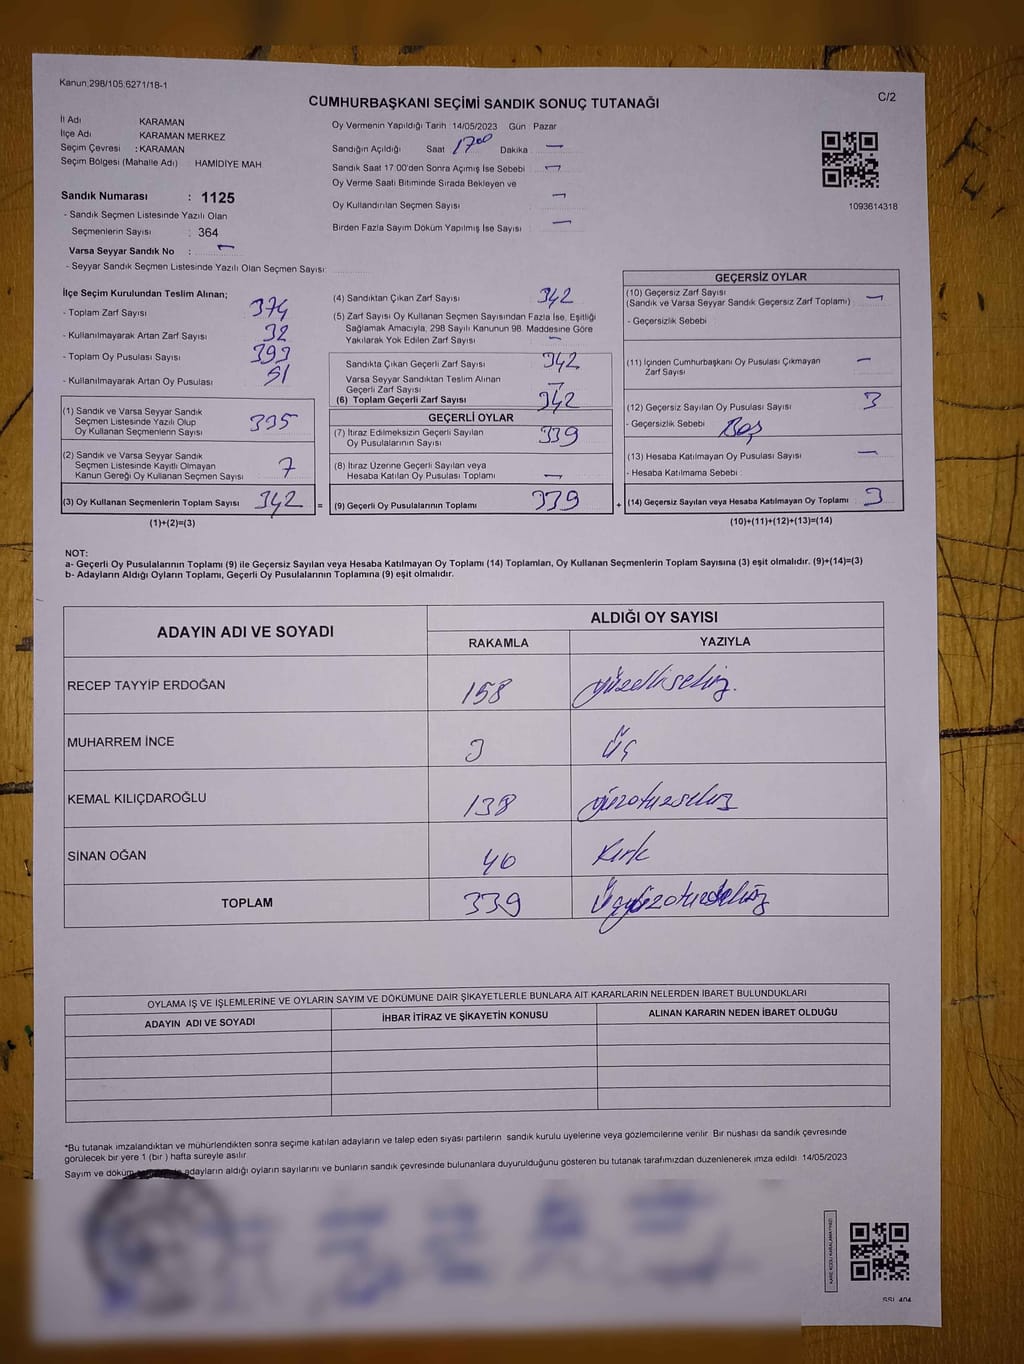 Kanun 298/105 6271/18-1
C/2
CUMHURBAŞKANI SEÇİMİ SANDIK SONUÇ TUTANAĞI
İl Adı KARAMAN
İlçe Adı KARAMAN MERKEZ
Seçim Çevresi : KARAMAN
Seçim Bölgesi (Mahalle Adı) HAMİDİYE MAH
Sandık Numarası : 1125
- Sandık Seçmen Listesinde Yazılı Olan
Seçmenlerin Sayısı : 364
Varsa Seyyar Sandık No : —
- Seyyar Sandık Seçmen Listesinde Yazılı Olan Seçmen Sayısı:
Oy Vermenin Yapıldığı Tarih 14/05/2023 Gün Pazar
Sandığın Açıldığı Saat 17 00 Dakika —
Sandık Saat 17 00'den Sonra Açımış İse Sebebi —
Oy Verme Saati Bitiminde Sırada Bekleyen ve
Oy Kullandırılan Seçmen Sayısı —
Birden Fazla Sayım Döküm Yapılmış İse Sayısı —
1093614318
İlçe Seçim Kurulundan Teslim Alınan;
- Toplam Zarf Sayısı 374
- Kullanılmayarak Artan Zarf Sayısı 32
- Toplam Oy Pusulası Sayısı 393
- Kullanılmayarak Artan Oy Pusulası 51
(1) Sandık ve Varsa Seyyar Sandık
Seçmen Listesinde Yazılı Olup
Oy Kullanan Seçmenlerin Sayısı 335
(2) Sandık ve Varsa Seyyar Sandık
Seçmen Listesinde Kayıtlı Olmayan
Kanun Gereği Oy Kullanan Seçmen Sayısı 7
(3) Oy Kullanan Seçmenlerin Toplam Sayısı 342 =
(1)+(2)=(3)
(4) Sandıktan Çıkan Zarf Sayısı 342
(5) Zarf Sayısı Oy Kullanan Seçmen Sayısından Fazla İse, Eşitliği
Sağlamak Amacıyla, 298 Sayılı Kanunun 98. Maddesine Göre
Yakılarak Yok Edilen Zarf Sayısı —
Sandıkta Çıkan Geçerli Zarf Sayısı 342
Varsa Seyyar Sandıktan Teslim Alınan
Geçerli Zarf Sayısı —
(6) Toplam Geçerli Zarf Sayısı 342
GEÇERLİ OYLAR
(7) İtiraz Edilmeksizin Geçerli Sayılan
Oy Pusulalarının Sayısı 339
(8) İtiraz Üzerine Geçerli Sayılan veya
Hesaba Katılan Oy Pusulası Toplamı —
(9) Geçerli Oy Pusulalarının Toplamı 339 +
GEÇERSİZ OYLAR
(10) Geçersiz Zarf Sayısı
(Sandık ve Varsa Seyyar Sandık Geçersiz Zarf Toplamı) —
- Geçersizlik Sebebi
(11) İçinden Cumhurbaşkanı Oy Pusulası Çıkmayan
Zarf Sayısı —
(12) Geçersiz Sayılan Oy Pusulası Sayısı 3
- Geçersizlik Sebebi Boş
(13) Hesaba Katılmayan Oy Pusulası Sayısı —
- Hesaba Katılmama Sebebi :
(14) Geçersiz Sayılan veya Hesaba Katılmayan Oy Toplamı 3
(10)+(11)+(12)+(13)=(14)
NOT:
a- Geçerli Oy Pusulalarının Toplamı (9) ile Geçersiz Sayılan veya Hesaba Katılmayan Oy Toplamı (14) Toplamları, Oy Kullanan Seçmenlerin Toplam Sayısına (3) eşit olmalıdır. (9)+(14)=(3)
b- Adayların Aldığı Oyların Toplamı, Geçerli Oy Pusulalarının Toplamına (9) eşit olmalıdır.
ADAYIN ADI VE SOYADI
ALDIĞI OY SAYISI
RAKAMLA YAZIYLA
RECEP TAYYİP ERDOĞAN 158 yüzellisekiz.
MUHARREM İNCE 3 Üç
KEMAL KILIÇDAROĞLU 138 yüzotuzsekiz
SİNAN OĞAN 40 Kırk
TOPLAM 339
OYLAMA İŞ VE İŞLEMLERİNE VE OYLARIN SAYIM VE DÖKÜMÜNE DAİR ŞİKAYETLERLE BUNLARA AİT KARARLARIN NELERDEN İBARET BULUNDUKLARI
ADAYIN ADI VE SOYADI İHBAR İTİRAZ VE ŞİKAYETİN KONUSU ALINAN KARARIN NEDEN İBARET OLDUĞU
*Bu tutanak imzalandıktan ve mühürlendikten sonra seçime katılan adayların ve talep eden siyasi partilerin sandık kurulu üyelerine veya gözlemcilerine verilir. Bir nüshası da sandık çevresinde
görülecek bir yere 1 (bir ) hafta süreyle asılır.
Sayım ve döküm adayların aldığı oyların sayılarını ve bunların sandık çevresinde bulunanlara duyurulduğunu gösteren bu tutanak tarafımızdan düzenlenerek imza edildi 14/05/2023